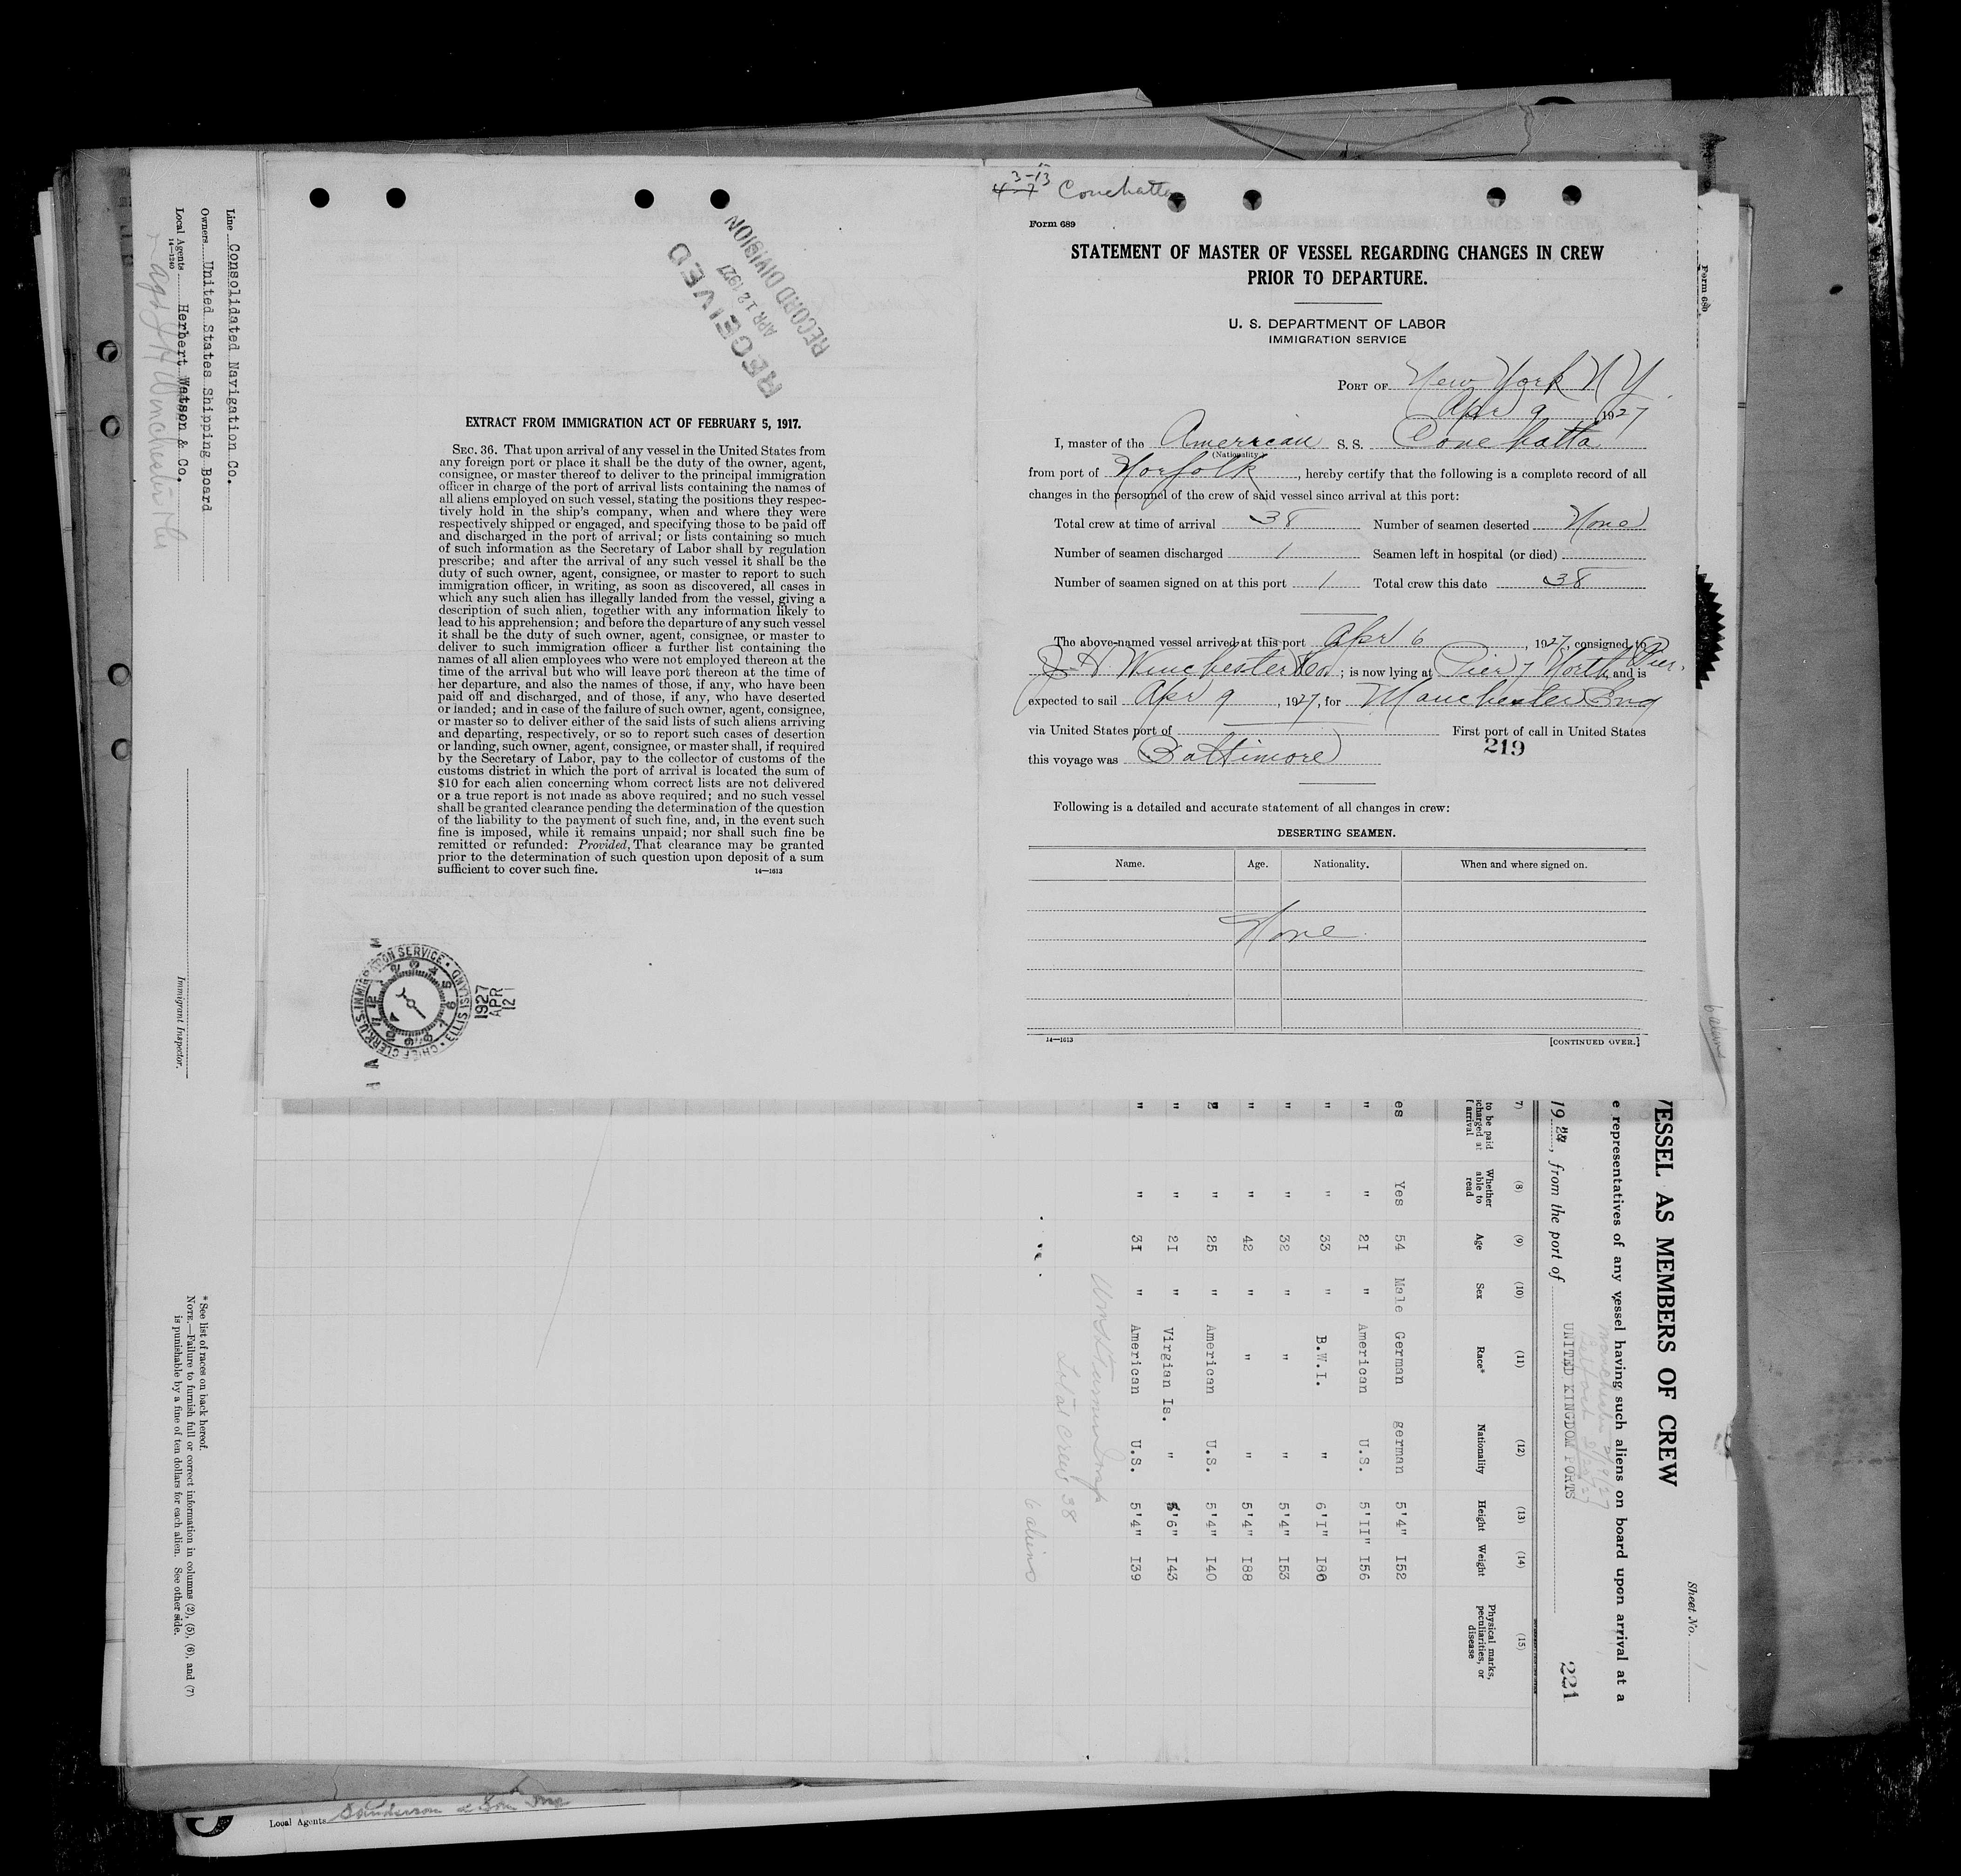 3-13
4-7 Conehatta
Form 689
STATEMENT OF MASTER OF VESSEL REGARDING CHANGES IN CREW
PRIOR TO DEPARTURE.
U. S. DEPARTMENT OF LABOR
IMMIGRATION SERVICE
PORT OF New York N Y
Apr 9 1927
I, master of the American S. S. Conehatta
(Nationality)
from port of Norfolk, hereby certify that the following is a complete record of all
changes in the personnel of the crew of said vessel since arrival at this port:
Total crew at time of arrival 38 Number of seamen deserted None
Number of seamen discharged 1 Seamen left in hospital (or died)
Number of seamen signed on at this port 1 Total crew this date 38
The above-named vessel arrived at this port Apr 6, 1927, consigned to
J. H. Winchester & Co.; is now lying at Pier 7 North River, and is
expected to sail Apr 9, 1927, for Manchester Eng
via United States port of First port of call in United States
this voyage was Baltimore
219
Following is a detailed and accurate statement of all changes in crew:
DESERTING SEAMEN.
Name. Age. Nationality. When and where signed on.
None
14—1613 [CONTINUED OVER.]
RECEIVED
APR 12 1927
RECORD DIVISION
EXTRACT FROM IMMIGRATION ACT OF FEBRUARY 5, 1917.
SEC. 36. That upon arrival of any vessel in the United States from
any foreign port or place it shall be the duty of the owner, agent,
consignee, or master thereof to deliver to the principal immigration
officer in charge of the port of arrival lists containing the names of
all aliens employed on such vessel, stating the positions they respec-
tively hold in the ship's company, when and where they were
respectively shipped or engaged, and specifying those to be paid off
and discharged in the port of arrival; or lists containing so much
of such information as the Secretary of Labor shall by regulation
prescribe; and after the arrival of any such vessel it shall be the
duty of such owner, agent, consignee, or master to report to such
immigration officer, in writing, as soon as discovered, all cases in
which any such alien has illegally landed from the vessel, giving a
description of such alien, together with any information likely to
lead to his apprehension; and before the departure of any such vessel
it shall be the duty of such owner, agent, consignee, or master to
deliver to such immigration officer a further list containing the
names of all alien employees who were not employed thereon at the
time of the arrival but who will leave port thereon at the time of
her departure, and also the names of those, if any, who have been
paid off and discharged, and of those, if any, who have deserted
or landed; and in case of the failure of such owner, agent, consignee,
or master so to deliver either of the said lists of such aliens arriving
and departing, respectively, or so to report such cases of desertion
or landing, such owner, agent, consignee, or master shall, if required
by the Secretary of Labor, pay to the collector of customs of the
customs district in which the port of arrival is located the sum of
$10 for each alien concerning whom correct lists are not delivered
or a true report is not made as above required; and no such vessel
shall be granted clearance pending the determination of the question
of the liability to the payment of such fine, and, in the event such
fine is imposed, while it remains unpaid; nor shall such fine be
remitted or refunded: Provided, That clearance may be granted
prior to the determination of such question upon deposit of a sum
sufficient to cover such fine. 14—1613
CHIEF CLERK U.S. IMMIGRATION SERVICE · ELLIS ISLAND
1927 APR 12
Form 689
Sheet No. 1
VESSEL AS MEMBERS OF CREW
e representatives of any vessel having such aliens on board upon arrival at a
19, from the port of UNITED KINGDOM PORTS 221
(7) (8) (9) (10) (11) (12) (13) (14) (15)
to be paid
charged at
arrival
Whether able to read Age Sex Race* Nationality Height Weight Physical marks, peculiarities, or disease
es Yes 54 Male German german 5'4" 152
" " 21 " American U.S. 5'11" 156
" " 33 " B.W.I. " 6'1" 186
" " 32 " " " 5'4" 153
" " 42 " " " 5'4" 188
" " 25 " American U.S. 5'4" 140
" " 21 " Virgian Is. " 5'6" 143
" " 31 " American U.S. 5'4" 139
Total Crew 38
6 aliens
6 aliens
Line Consolidated Navigation Co.
Owners United States Shipping Board
Local Agents Herbert Watson & Co.
14—1240
Immigrant Inspector.
* See list of races on back hereof.
NOTE.—Failure to furnish full or correct information in columns (2), (5), (6), and (7)
is punishable by a fine of ten dollars for each alien. See other side.
Local Agents Sanderson & Son Inc